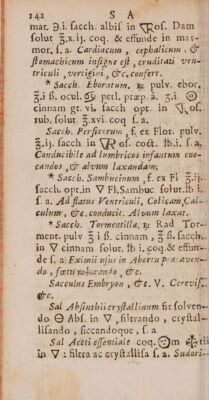 142 S A
mat. ℈.i. sacch. albiſ in Ros. Dam
solut ℥.x.ij. coq. & effunde in mar-
mor. ſ. a Cardiacum , cephalicum , &
ſtomachicum inſigne eſt , cruditati ven-
triculi , vertigini , &c. confert.
* Sacch. Eboratum. ℞ pulv. ebor.
℥.i ß. ocul. ♋ perl. præp. a. ʒ.i
cinnam gt. vi. sacch opt. in Ros.
rub. solut ℥.xvi. coq ſ. a.
Sacch. Perſicorum , f. ex Flor. pulv.
℥.ij. sacch in Ros coct. ℔.i. ſ. a,
Conducibile ad lumbricos infantum ene-
candos , & alvum laxandam.
* Sacch. Sambucinum , f. ex Fl ℥.ij.
sacch. opt. in 🜄 Fl. Sambuc solut. ℔ i.
ſ. a. Ad flatus Ventriculi, Colicam, Cal-
culum , &c. conducit. Alvum laxat.
* Sacch. Tormentillæ. ℞ Rad Tor-
ment. pulv ʒ i ß. cinnam , ʒ ß. sacch.
in 🜄 cinnam solut. ℔ i. coq & effun-
de ſ. a Eximii uſus in Abortu præcaven-
do , fœtu roborando , &c.
Sacculus Embryon , &c. V. Cereviſ.
&c.
Sal Abſinthii cryſtallinum fit ſolven-
do Abſ. in 🜄 , filtrando , cryſtal-
liſando , ſiccandoque , ſ. a
Sal Aceti eſſentiale coq.
in 🜄 : filtra ac cryſtalliſa ſ. a. Sudori-